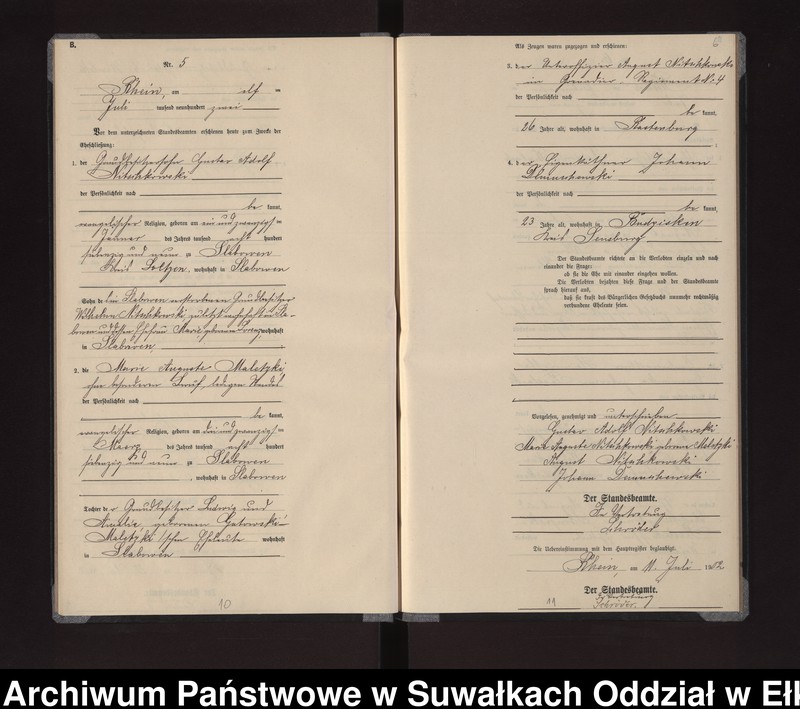 B.
Nr. 5
Rhein, am elf ten
Juli tausend neunhundert zwei
Vor dem unterzeichneten Standesbeamten erschienen heute zum Zwecke der
Eheschließung:
1. der Grundbesitzersohn Gustav Adolf
Nitschkowski
der Persönlichkeit nach
be kannt,
evangelischer Religion, geboren am ein und zwanzigsten
Januar des Jahres tausend acht hundert
siebenzig und neun zu Slabowen
Kreis Loetzen, wohnhaft in Slabowen
Sohn des in Slabowen verstorbenen Grundbesitzer
Wilhelm Nitschkowski, zuletzt wohnhaft in Sla-
bowen und dessen Ehefrau Marie geborene wohnhaft
in Slabowen
2. die Marie Auguste Maletzki
ohne besonderen Beruf, ledigen Standes
der Persönlichkeit nach
be kannt,
evangelischer Religion, geboren am drei und zwanzigsten
Maerz des Jahres tausend acht hundert
siebenzig und neun zu Slabowen
, wohnhaft in Slabowen
Tochter der Grundbesitzer Ludwig und
Amalie geborenen Gutowski-
Maletzki'schen Eheleute wohnhaft
in Slabowen
10
Als Zeugen waren zugezogen und erschienen:
3. der Unteroffizier August Nitschkowski
im Grenadier-Regiment Nr. 4
der Persönlichkeit nach
be kannt,
26 Jahre alt, wohnhaft in Rastenburg
4. der Eigenkäthner Johann
der Persönlichkeit nach
be kannt,
23 Jahre alt, wohnhaft in
Kreis Sensburg
Der Standesbeamte richtete an die Verlobten einzeln und nach
einander die Frage:
ob sie die Ehe mit einander eingehen wollen.
Die Verlobten bejahten diese Frage und der Standesbeamte
sprach hierauf aus,
daß sie kraft des Bürgerlichen Gesetzbuchs nunmehr rechtmäßig
verbundene Eheleute seien.
Vorgelesen, genehmigt und unterschrieben
Gustav Adolf Nitschkowski
Marie Auguste Nitschkowski geborene Maletzki
August Nitschkowski
Johann
Der Standesbeamte.
In Vertretung
Schröder
Die Uebereinstimmung mit dem Hauptregister beglaubigt.
Rhein, am 11. Juli 1902
Der Standesbeamte.
In Vertretung
Schröder.
11
Archiwum Państwowe w Suwałkach Oddział w Ełk